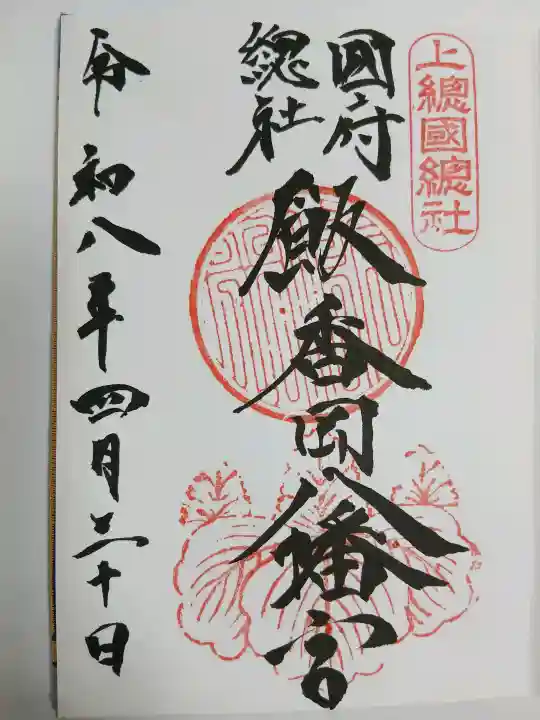 上總國總社
國府
總社
飯香岡八幡宮
令和八年四月三十日